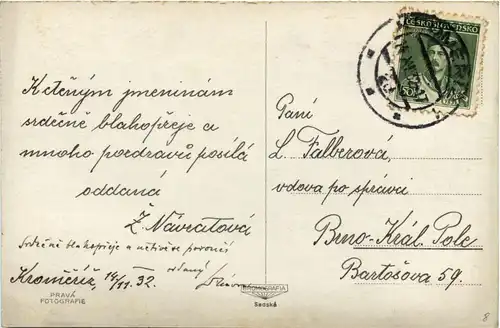 K ctěným jmeninám
srdečně blahopřeje a
mnoho pozdravů posílá
oddaná
Ž. Návratová
Srdečně blahopřeje a
oddaný
Kroměříž, 14/11. 32.
PRAVÁ
FOTOGRAFIE
BROMOGRAFIA
Sadská
ČESKOSLOVENSKO
50
Paní
L. Falberová,
vdova po správci
Brno-Král. Pole
Bartošova 59.
8